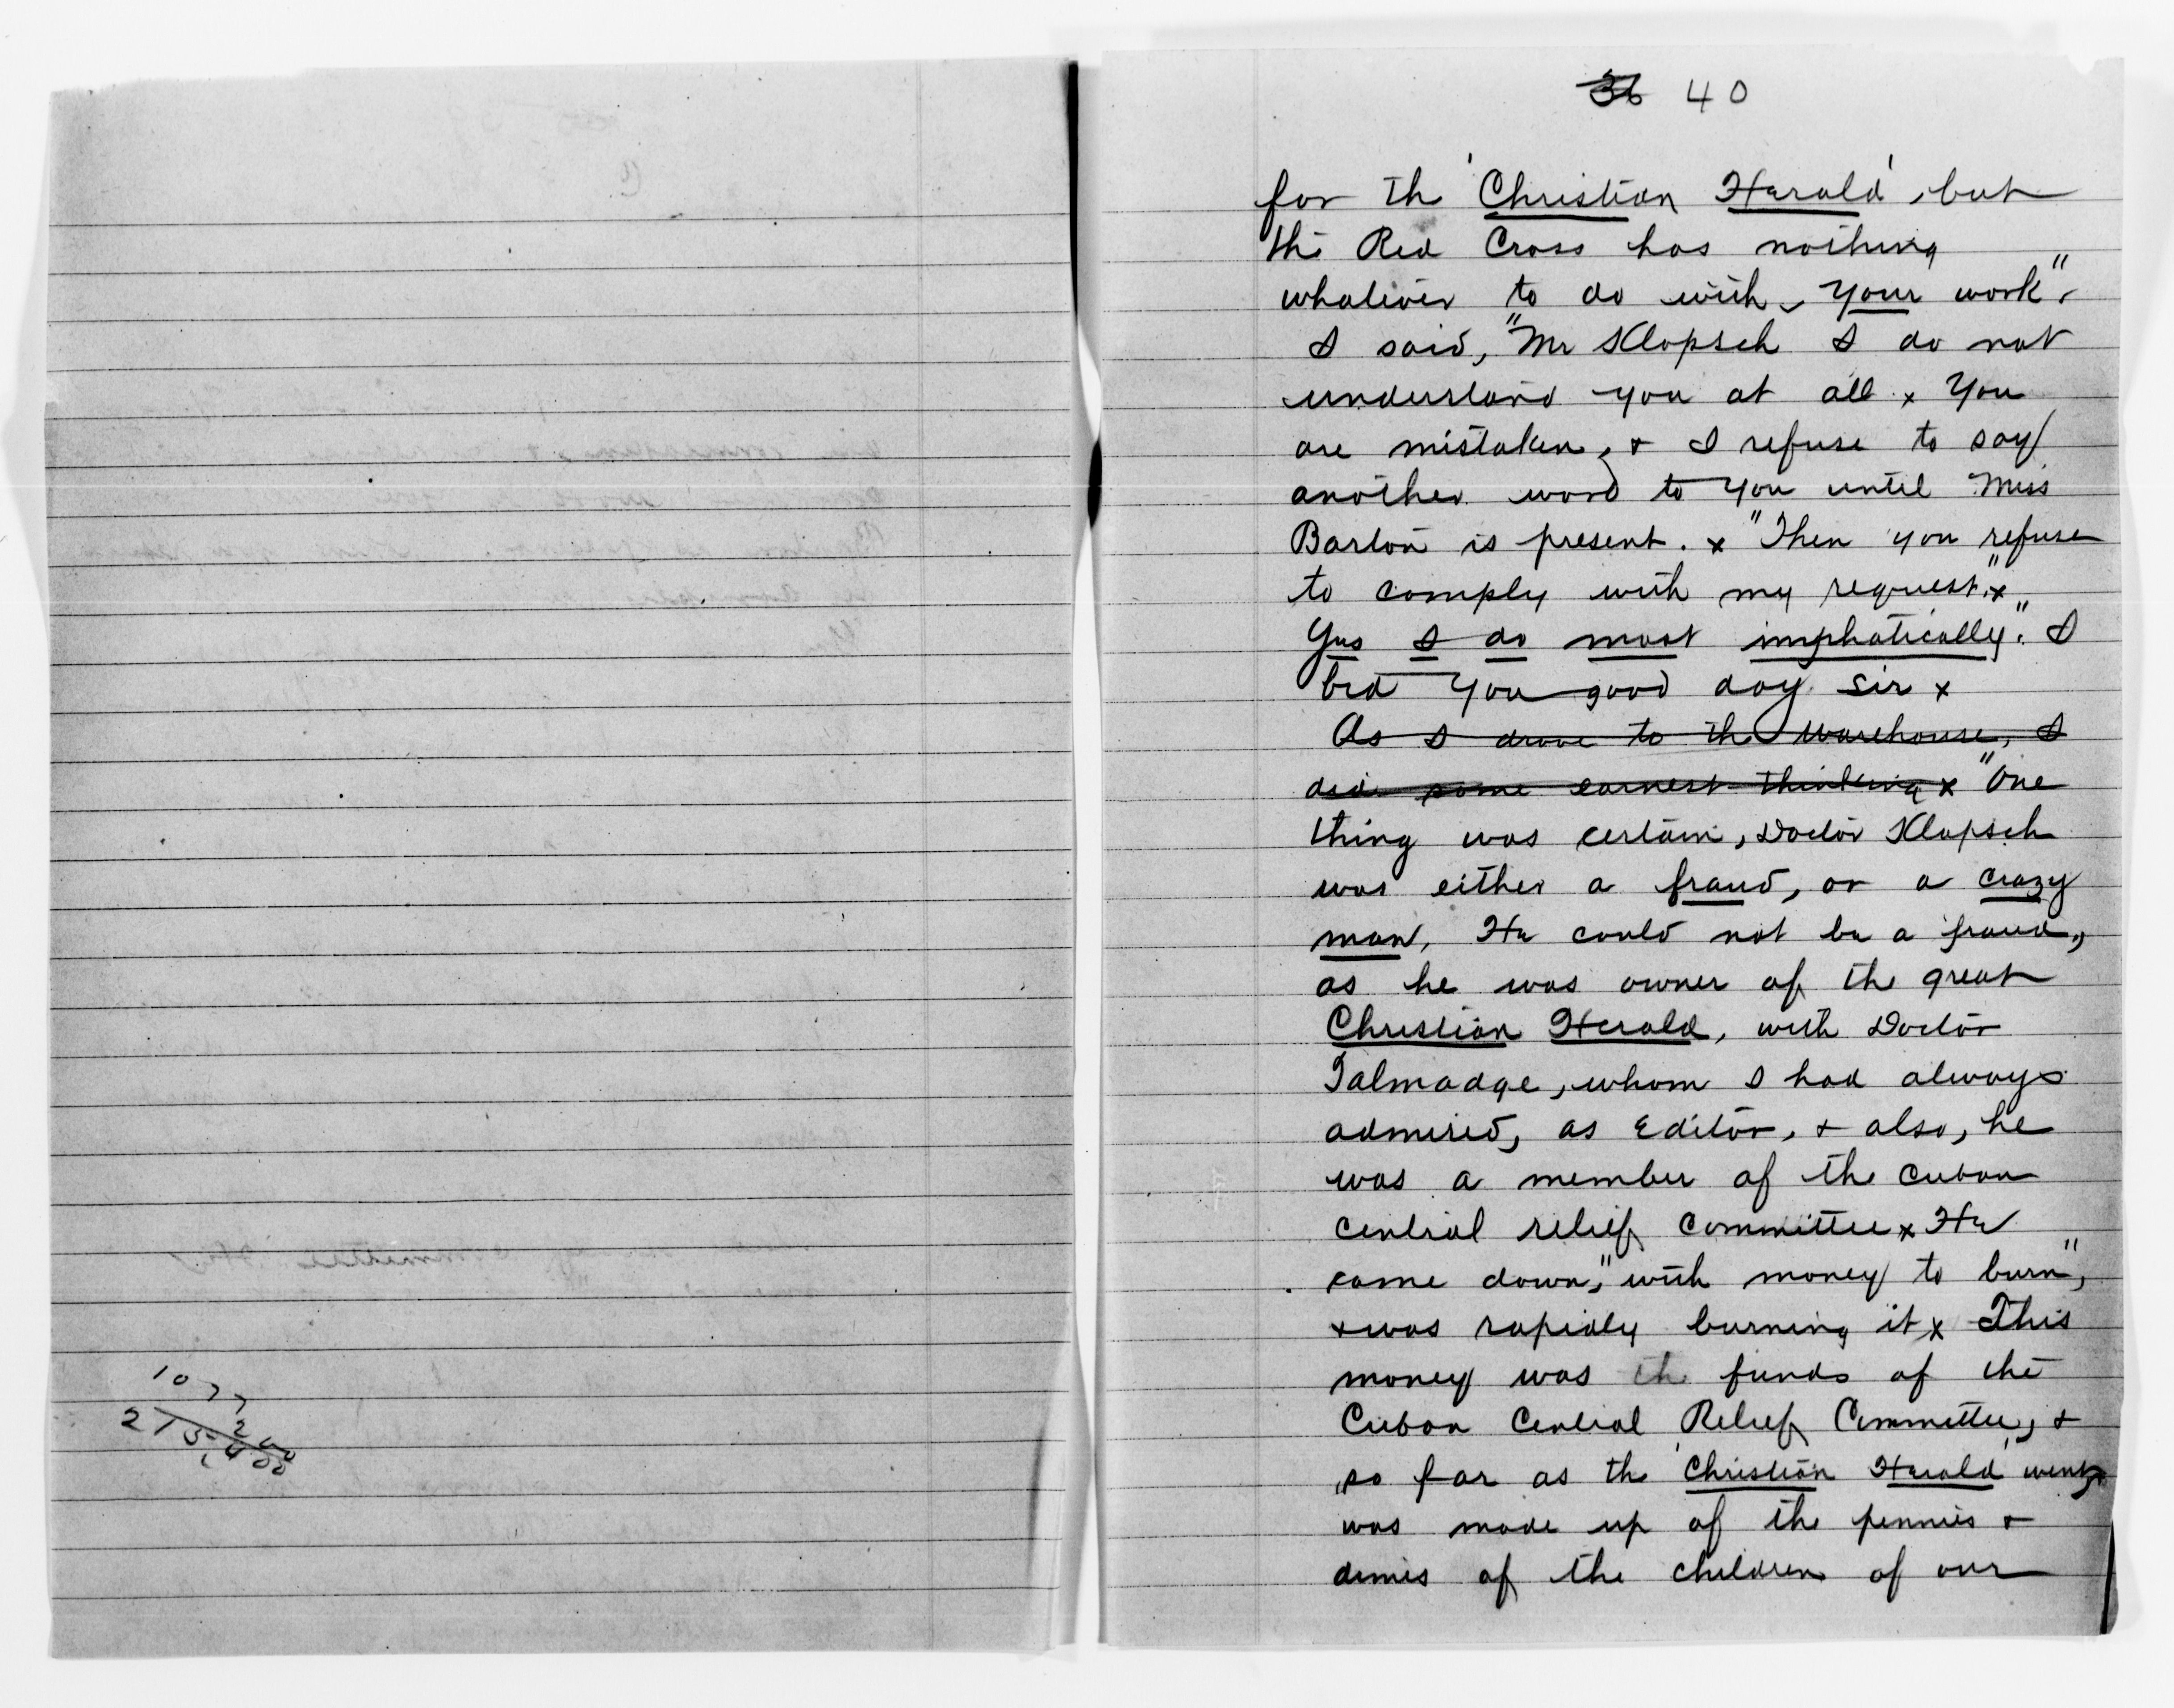 1077
36 40
for the 'Christian Herald', but
the Red Cross has nothing
whatever to do with your work".
I said, "Mr Klopsch I do not
understand you at all x You
are mistaken, & I refuse to say
another word to you until Miss
Barton is present. x "Then you refuse
to comply with my request". x
Yes I do most imphatically." I
bid you good day sir x
As I drove to the warehouse, I
did some earnest thinking x "One
thing was certain, Doctor Klopsch
was either a fraud, or a crazy
man, He could not be a fraud,
as he was owner of the great
Christian Herald, with Doctor
Talmadge, whom I had always
admired, as Editor, & also, he
was a member of the Cuban
central relief Committee x He
came down, "with money to burn",
& was rapidly burning it x This
money was th funds of the
Cuban Central Relief Committee, &
so far as the 'Christian Herald' went,
was made up of the pennies &
dimes of the children of our